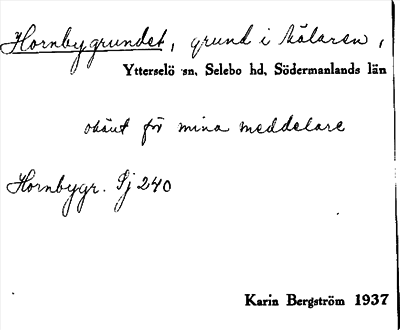 Hornbygrundet, grund i Mälaren,
Ytterselö sn, Selebo hd, Södermanlands län
okänt för mina meddelare
Hornbygr. Sj 240
Karin Bergström 1937